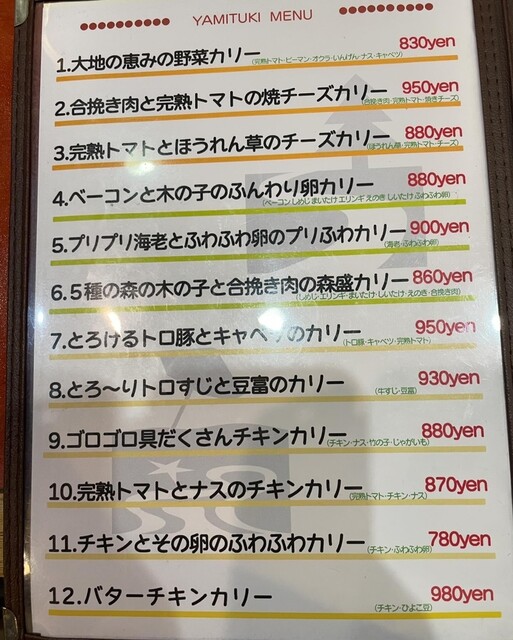 YAMITUKI MENU
1.大地の恵みの野菜カリー 830yen
(完熟トマト・ピーマン・オクラ・いんげん・ナス・キャベツ)
2.合挽き肉と完熟トマトの焼チーズカリー 950yen
(合挽き肉・完熟トマト・焼きチーズ)
3.完熟トマトとほうれん草のチーズカリー 880yen
(ほうれん草・完熟トマト・チーズ)
4.ベーコンと木の子のふんわり卵カリー 880yen
(ベーコン しめじ まいたけ エリンギ えのき しいたけ ふわふわ卵)
5.プリプリ海老とふわふわ卵のプリふわカリー 900yen
(海老・ふわふわ卵)
6.5種の森の木の子と合挽き肉の森盛カリー 860yen
(しめじ・エリンギ・まいたけ・しいたけ・えのき・合挽き肉)
7.とろけるトロ豚とキャベツのカリー 950yen
(トロ豚・キャベツ・完熟トマト)
8.とろ〜りトロすじと豆富のカリー 930yen
(牛すじ・豆富)
9.ゴロゴロ具だくさんチキンカリー 880yen
(チキン・ナス・竹の子・じゃがいも)
10.完熟トマトとナスのチキンカリー 870yen
(完熟トマト・チキン・ナス)
11.チキンとその卵のふわふわカリー 780yen
(チキン・ふわふわ卵)
12.バターチキンカリー 980yen
(チキン・ひよこ豆)